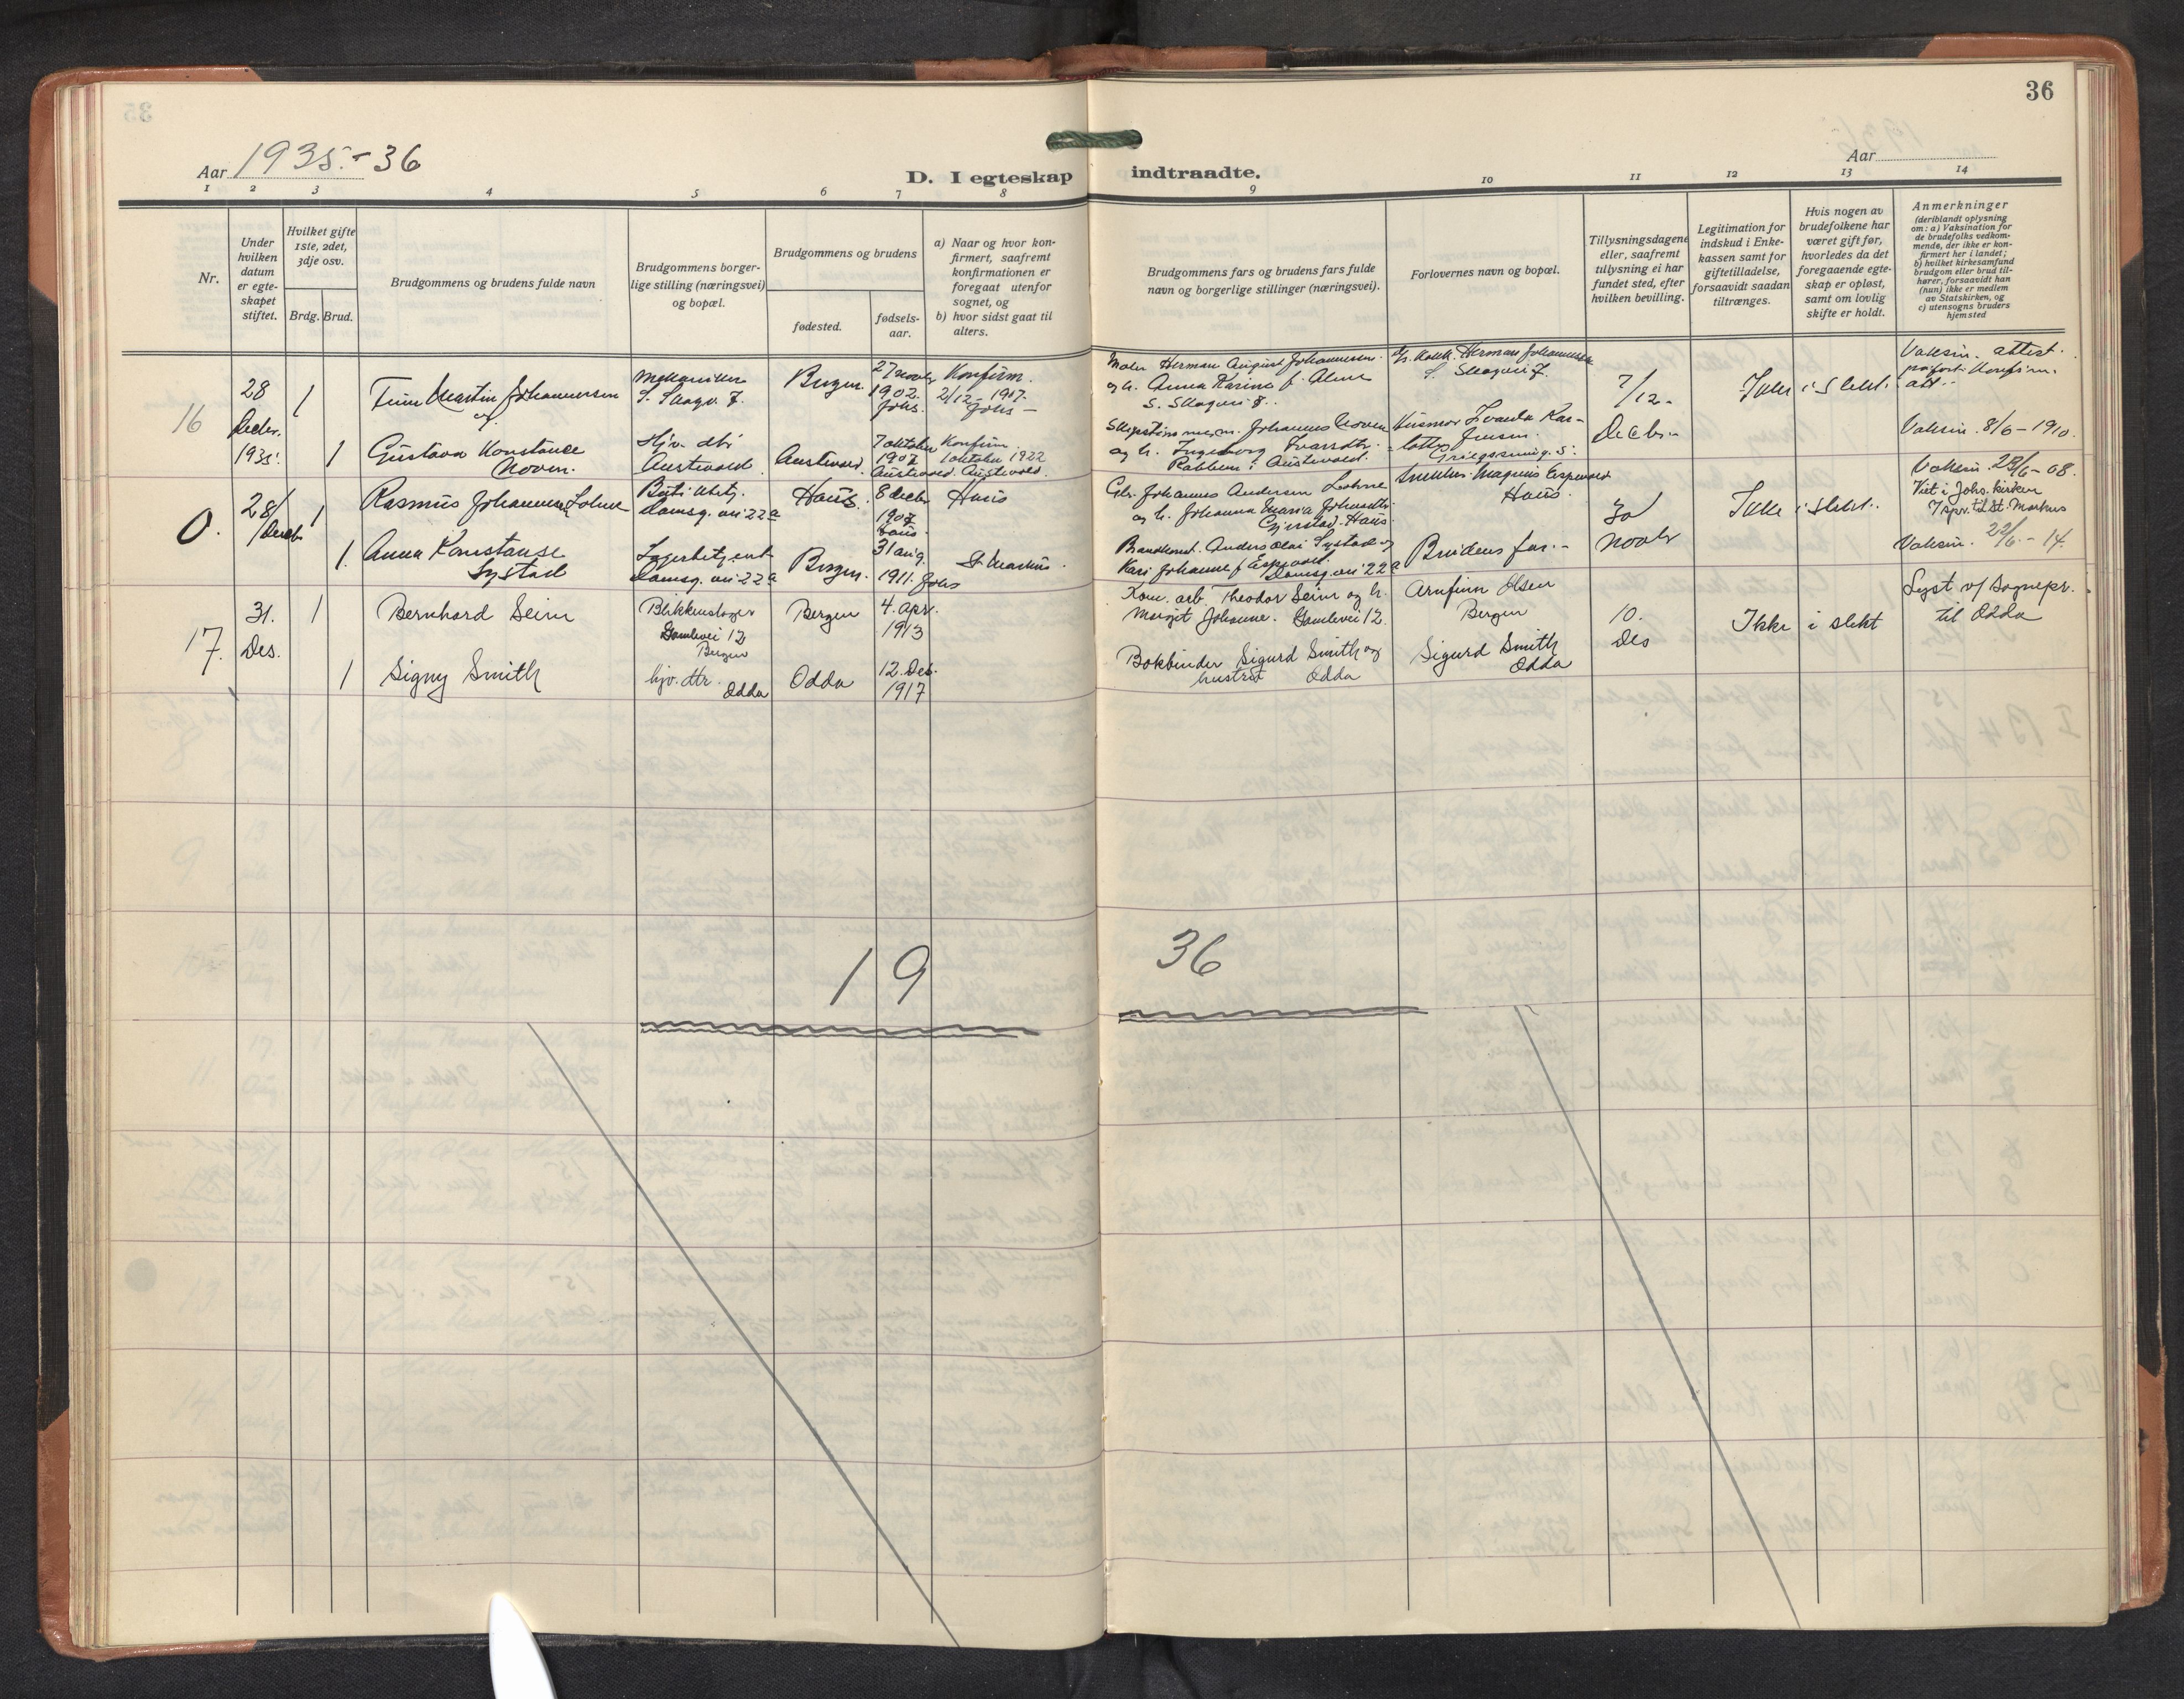 36
Aar 1935.-36
D. I egteskap indtraadte.
Aar
1 2 3 4 5 6 7 8 9 10 11 12 13 14
Nr.
Under hvilken datum er egteskapet stiftet.
Hvilket gifte 1ste, 2det, 3dje osv.
Brdg. Brud.
Brudgommens og brudens fulde navn
Brudgommens borgerlige stilling (næringsvei) og bopæl.
Brudgommens og brudens
fødested.
fødsels-aar.
a) Naar og hvor konfirmert, saafremt konfirmationen er foregaat utenfor sognet, og
b) hvor sidst gaat til alters.
Brudgommens fars og brudens fars fulde navn og borgerlige stillinger (næringsvei).
Forlovernes navn og bopæl.
Tillysningsdagene eller, saafremt tillysning ei har fundet sted, efter hvilken bevilling.
Legitimation for indskud i Enkekassen samt for giftetilladelse, forsaavidt saadan tiltrænges.
Hvis nogen av brudefolkene har været gift før, hvorledes da det foregaaende egteskap er opløst, samt om lovlig skifte er holdt.
Anmerkninger
(deriblandt oplysning om: a) Vaksination for de brudefolks vedkommende, der ikke er konfirmert her i landet;
b) hvilket kirkesamfund brudgom eller brud tilhører, forsaavidt han (hun) ikke er medlem av Statskirken, og
c) utensogns bruders hjemsted
16
28 Decbr. 1935.
1
Martin Johannessen
og
Mekaniker
S. Skogv. 7.
Bergen
27 novbr
1902.
Johs.
Konfirm.
2/12 - 1917.
Johs -
Maler Herman August Johannessen
og h. Anna Karine f.
S. Skogvei 8.
Herman Johannessen
S. Skogvei 7.
7/12.-
Decbr.-
Ikke i slekt.
Vaksin. attest.
Konfirm.
att.
1
Gustava Konstance
Hjv. dtr
Austevold
Austevold.
7 oktober
1907
Austevold.
Konfirm.
1 oktober 1922
Austevold.
Johannes
og h. Ingeborg Ivarsdtr.
i Austevold.
Husmor
Jensen
Vaksin. 8/6 - 1910.
0.
28/ Decbr
1
Rasmus Johannessen Lohne
Damsg. vei 22a
Haus.
8 decbr
1907
Haus
Haus
Gbr. Johannes Andersen Lohne
og h. Johanna Maria Johnsdtr.
Gjerstad. Haus
Snekker Magnus Espevold
Haus.
30
Novbr
Ikke i slekt.
Vaksin. 23/6 - 08.
Viet i Johs. kirken
7 spr. til St. Markus
1.
Anna Konstanse
Systad
Damsg. vei 22a
Bergen.
31 aug.
1911. Johs
St. Markus.
Brandkonst. Anders Olai Systad og
Kari Johanne f. Espevold.
Damsg. vei 22a
Brudens far.-
Vaksin. 22/6. - 14.
17.
31.
Des.
1
Bernhard Seim
Blikkenslager
Damlevei 12
Bergen
Bergen
4. Apr.
1913
Kom. arb. Theodor Seim og h.
Margit Johanne. Damlevei 12.
Arnfinn Olsen
Bergen
10.
Des
Ikke i slekt
Lyst v/ Sognepr.
til Odda
1
Signy Smith
hjv. dtr.
Odda
Odda
12. Des.
1917
Bokbinder Sigurd Smith og
hustru Odda
Sigurd Smith
Odda
19 36